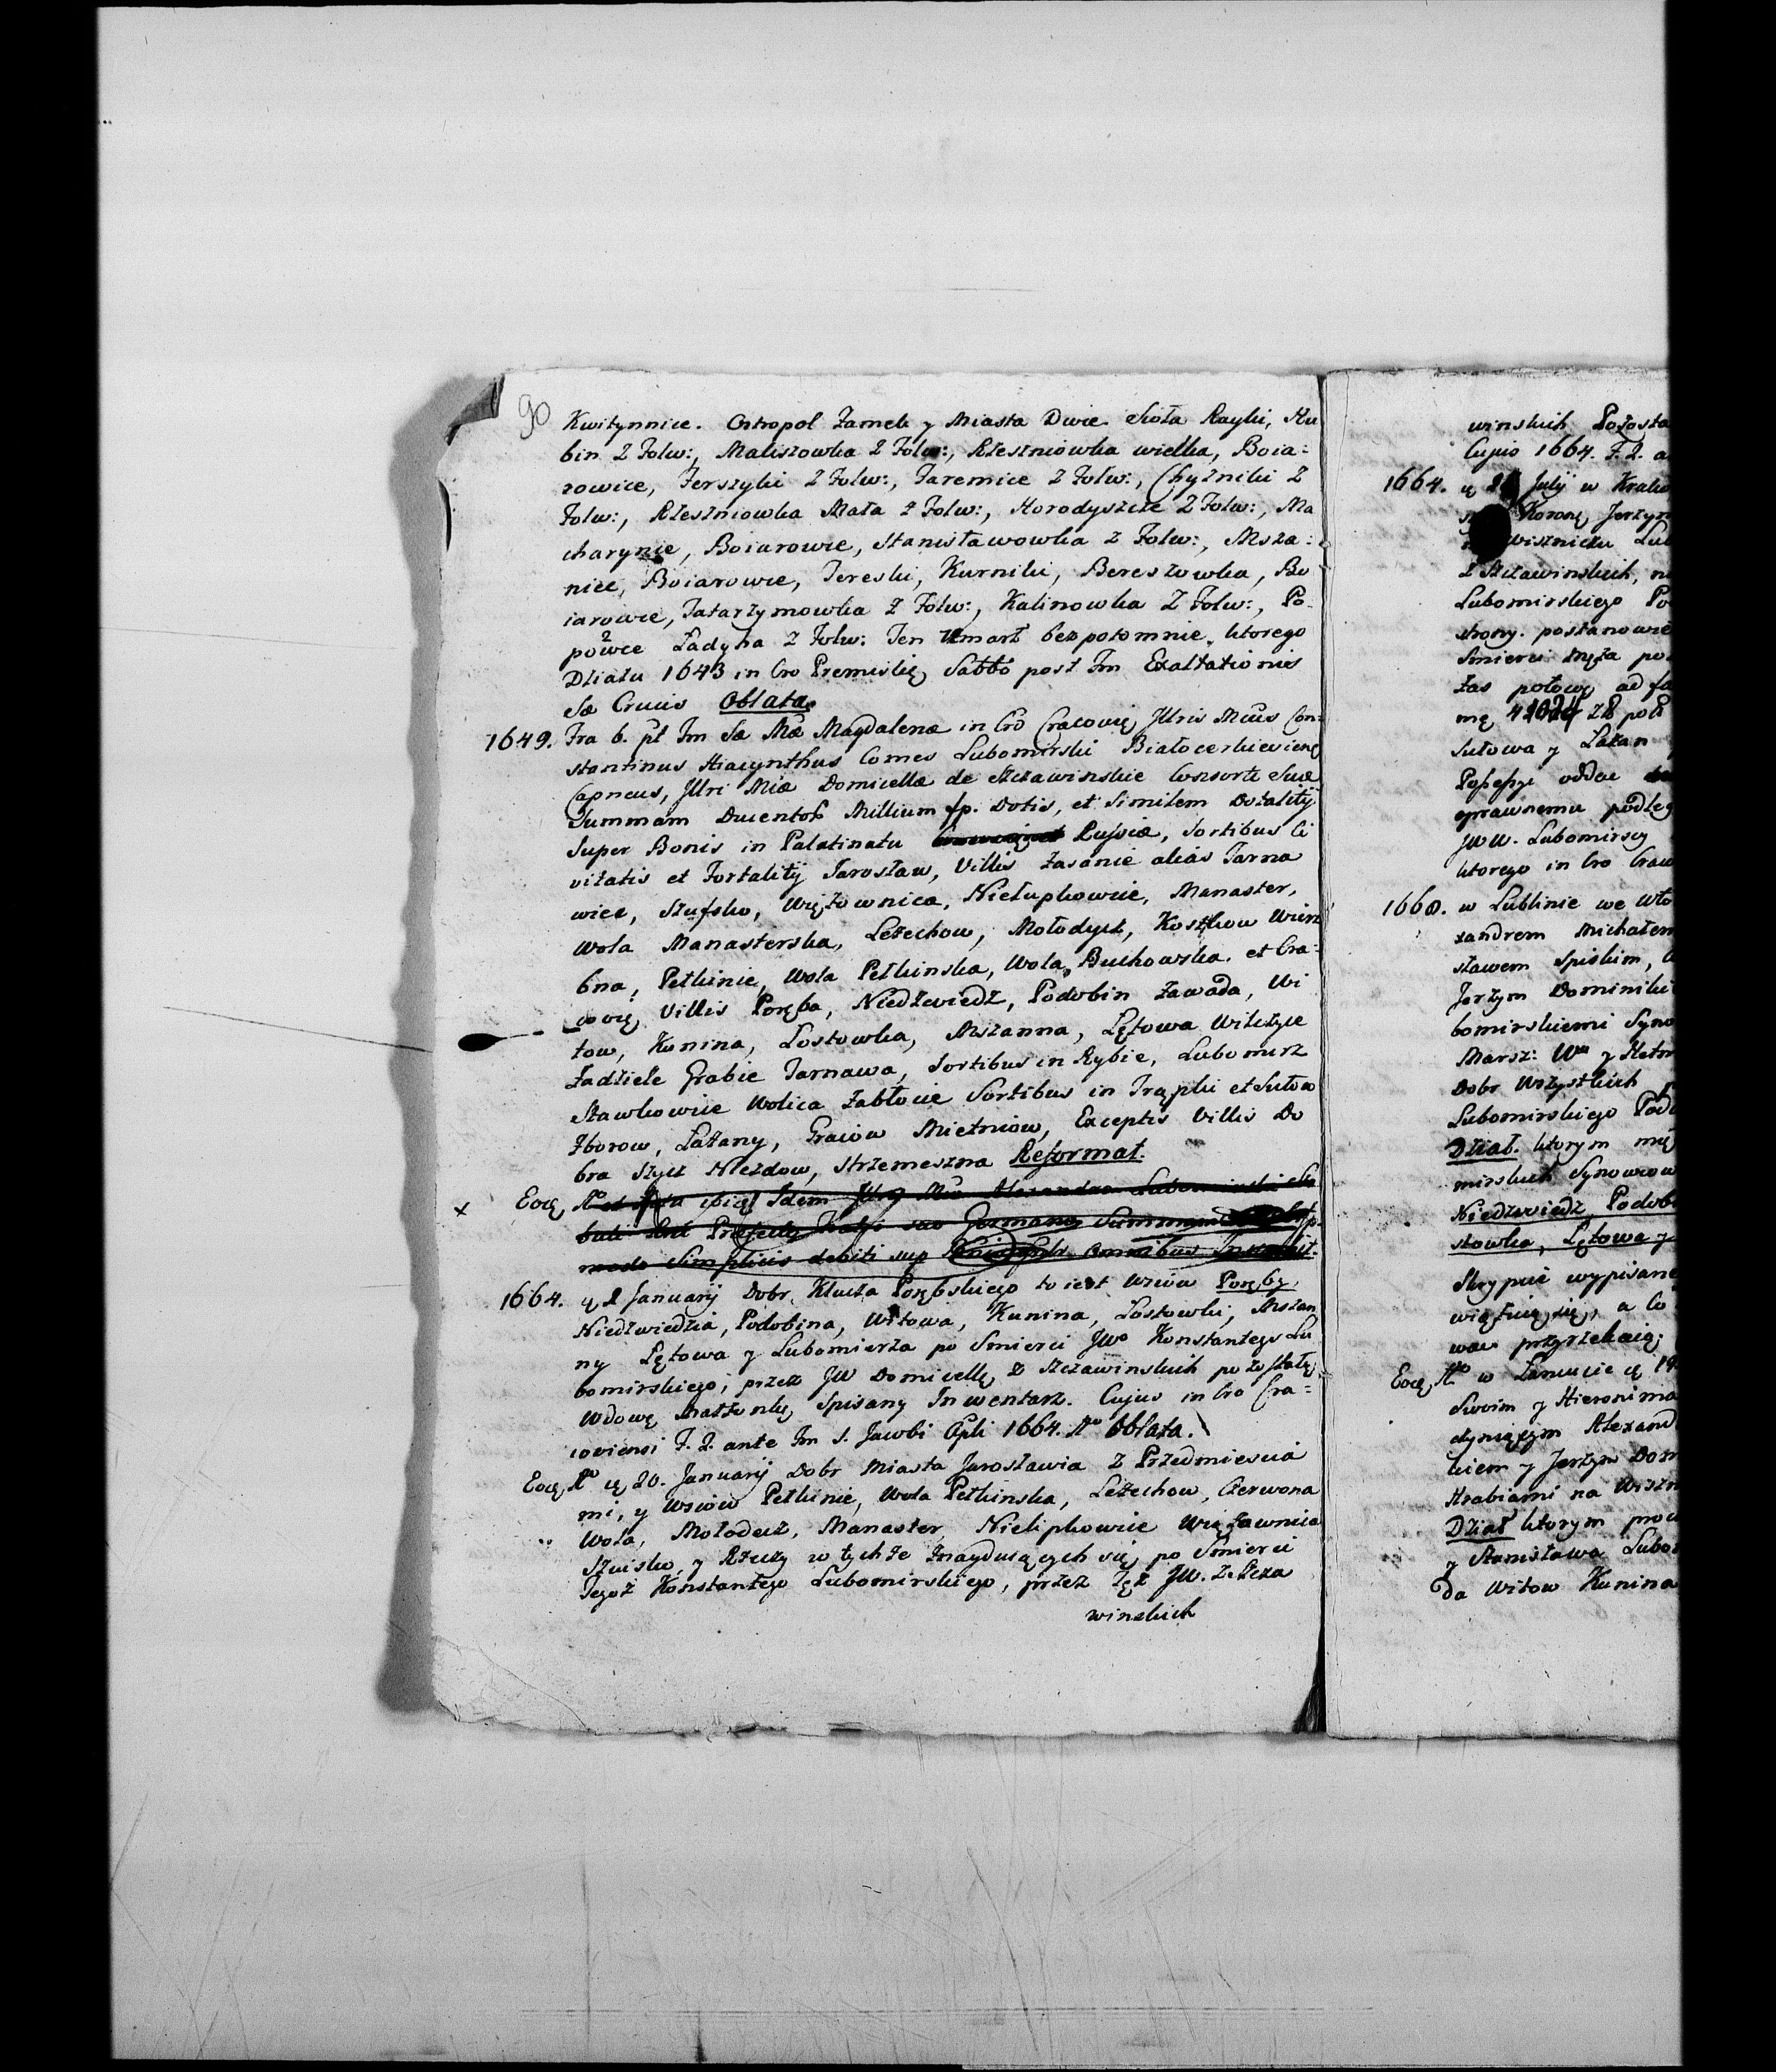 90
Kwitynnice. Ostropol Zamek y Miasta Dwie Sioła Rayki, Ku
bin Z Folw:, Maliszowka Z Folw:, Rzeszniowka wielka, Boia:
rowice, Terszyki Z Folw:, Jaremice Z Folw:, Chyżniki Z
Folw:, Rzeszniowka Mała Z Folw:, Horodyszcze Z Folw:, Ma
charynce, Boiarowie, Stanisławowka Z Folw:, Msza:
nice, Boiarowie, Tereski, Kurniki, Bereszowka, Bo
iarowie, Tatarzymowka Z Folw:, Kalinowka Z Folw:, Po
powce Ładyha Z Folw: Ten Umarł bezpotomnie, ktorego
Działu 1643 in Cro Premislię Sabbo post Fm Exaltationis
Sæ Crucis Oblata.
1649. Fra 6. pt Fm Sæ Mæ Magdalenæ in Cro Cracovię Jllris Mcus Con:
stantinus Hiacynthus Comes Lubomirski Białocerkievienę
Capneus, Jllri Miæ Domicellæ de Szczawinskie Consorti Suæ
Summam Ducentos Millium fp. Dotis, et Similem Dotalitÿ
Super Bonis in Palatinatu Russiæ, Sortibus Ci
vitatis et Fortalitÿ Jarosław, Villis Zasanie aliás Tarna
wiec, Szufsko, Więzownica, Nielupkowice, Manaster,
Wola Manasterska, Leżechow, Mołodycz, Kostkow Wierz
bna, Pełkinie, Wola Pełkinska, Wola Buchowska, et Cra:
covię Villis Poręba, Niedzwiedz, Podobin Zawada, Wi
tow, Konina, Łostowka, Mszanna, Łętowa Wilczyce
Zadziele Grabie Tarnawa, Sortibus in Rybie, Lubomirz
Stawkowice Wolica Zabłocie Sortibus in Trąpki et Sułow
Zborow, Łazany, Graiow Mietniow, Exceptis Villis Do
bra Szycz Niezdow, Strzemeszna Reformat.
x Eoę Ao et Idem Jll Alexandro Lubomirski
Germano Summam
modo Simplicis debiti sup omnibus
1664. ę 2 Januarÿ Dobr Klucza Porębskiego to iest Wsiow Poręby,
Niedzwiedzia, Podobina, Witowa, Kunina, Łostowki, Mszan
ny Łętowa y Lubomierza po Smierci JWo Konstantego Lu
bomirskiego, przez JW Domicellę z Szczawinskich pozostałę
Wdowę Małżonkę Spisany Inwentarz. Cujus in Cro Cra=
coviensi F. 2. ante Fm S. Jacobi Apli 1664. Ao Oblata.
Eoę Ao ę 20. Januarÿ Dobr Miasta Jarosławia z Przedmiescia
mi, y Wsiow Pełkinie, Wola Pełkinska, Leżechow, Czerwona
Wola, Mołodecz, Manaster, Nielipkowice Więzawnica
Szuisko, y Rzeczy w tychże Znayduiących się po Smierci
Tegoż Konstantego Lubomirskiego, przez Tęż JW. Zeszcza
winskich
winskich Pozosta
Cujus 1664. F. 2. a
1664. ę July w Krako
Korony Jerzym
Wiszniczu Lub
z Szczawinskich, n
Lubomirskiego Po
strony. postanowie
Smierci Męża po
Zas połowę ad fa
mę
Sułowa y Łazan
Possessyi oddac
prawnemu podleg
JWW. Lubomirscy
ktorego in Cro Crac
1668. w Lublinie we Wto
xandrem Michałem
sławem Spiskim,
Jerzym Dominiki
bomirskiemi Syno
Marsz: Wo y Hetm
Dobr Wszystkich
Lubomirskiego Podc
Dział. ktorym mię
mirskich Synowcow
Niedzwiedz, Podob
stowka, Łętowa y
Skrypcie wypisane
wiązuią się, a Co
wac przyrzekaią;
Eoę Ao w Łancucie ę 19
Swoim y Hieronima
dynuiącym Alexand
kiem y Jerzym Dom
Hrabiami na Wiszn
Dział ktorym proc
y Stanisława Lubom
da Witow Kunina